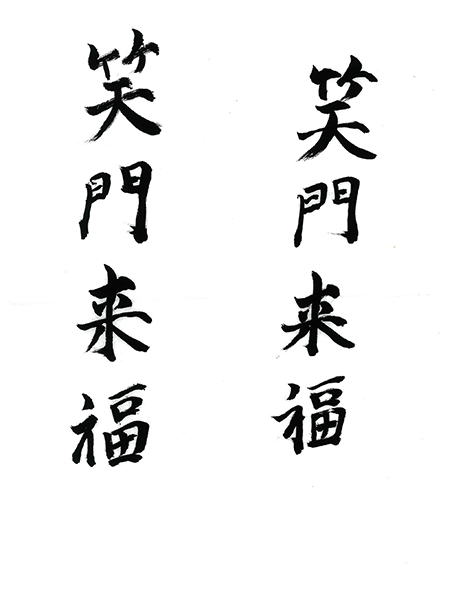 笑門来福
笑門来福